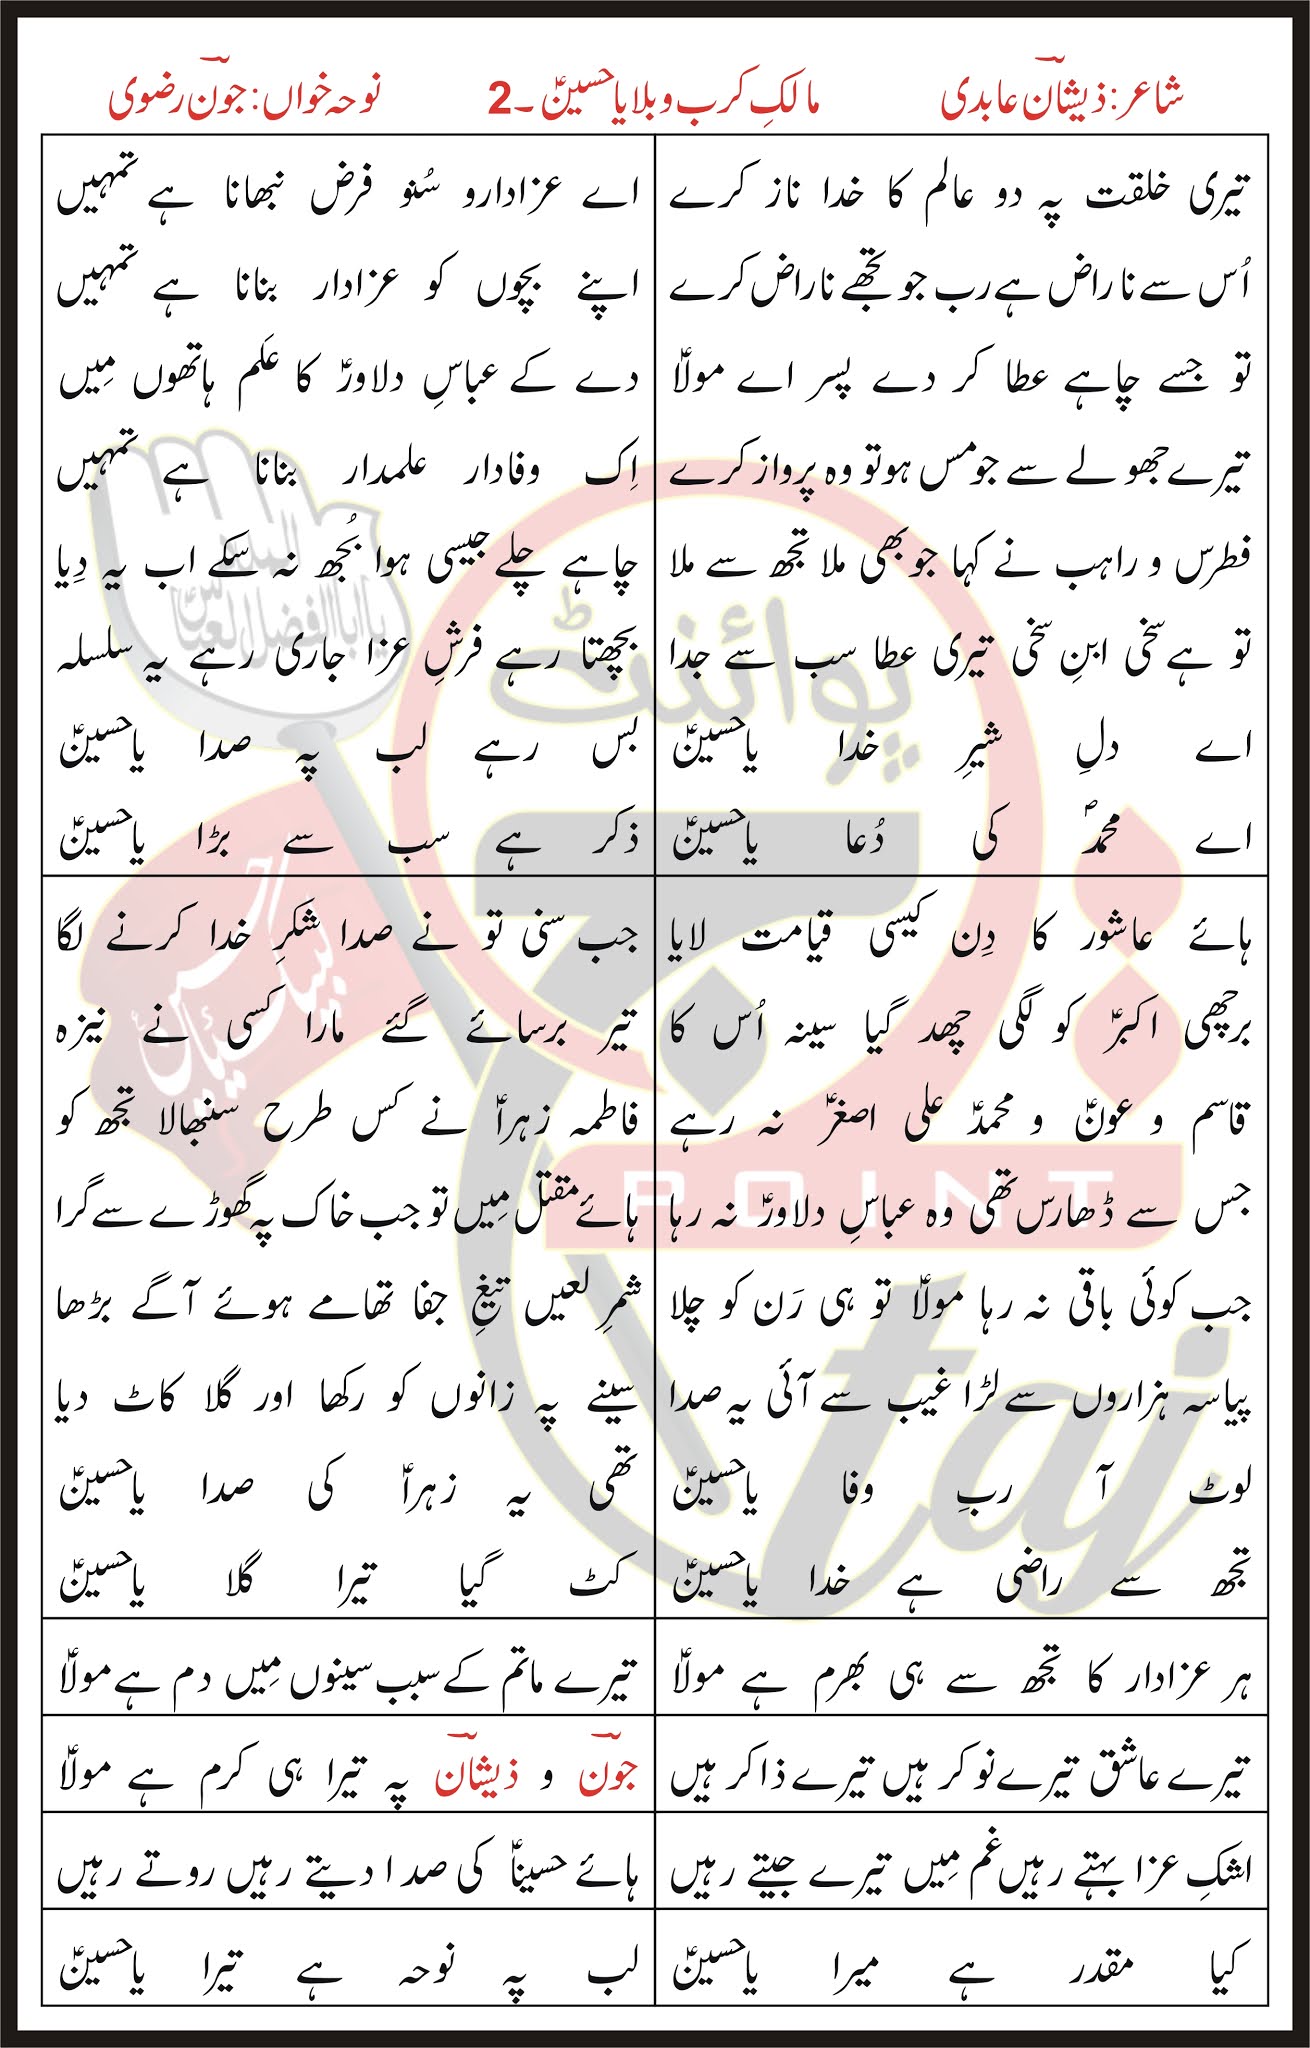 شاعر: ذیشان عابدی
مالکِ کرب و بلا یا حسینؑ ۔2
نوحہ خواں: جون رضوی
تیری خلقت پہ دو عالم کا خدا ناز کرے
اُس سے ناراض ہے رب جو تجھے ناراض کرے
تو جسے چاہے عطا کر دے پسر اے مولاؑ
تیرے جھولے سے جو مس ہو تو وہ پرواز کرے
فطرس و راہب نے کہا جو بھی ملا تجھ سے ملا
تو ہے سخی ابنِ سخی تیری عطا سب سے جدا
اے دلِ شیرِ خدا یا حسینؑ
اے محمدؐ کی دُعا یا حسینؑ
اے عزادارو سُنو فرض نبھانا ہے تمہیں
اپنے بچوں کو عزادار بنانا ہے تمہیں
دے کے عباسِ دلاورؑ کا عَلم ہاتھوں مِیں
اِک وفادار علمدار بنانا ہے تمہیں
چاہے چلے جیسی ہوا بُجھ نہ سکے اب یہ دِیا
بچھتا رہے فرشِ عزا جاری رہے یہ سلسلہ
بس رہے لب پہ صدا یا حسینؑ
ذکر ہے سب سے بڑا یا حسینؑ
ہائے عاشور کا دِن کیسی قیامت لایا
برچھی اکبرؑ کو لگی چھد گیا سینہ اُس کا
قاسم و عونؑ و محمدؑ علی اصغرؑ نہ رہے
جس سے ڈھارس تھی وہ عباسِ دلاورؑ نہ رہا
جب کوئی باقی نہ رہا مولاؑ تو ہی رَن کو چلا
پیاسہ ہزاروں سے لڑا غیب سے آئی یہ صدا
لوٹ آ ربِ وفا یا حسینؑ
تجھ سے راضی ہے خدا یا حسینؑ
جب سنی تو نے صدا شکرِ خدا کرنے لگا
تیر برسائے گئے مارا کسی نے نیزہ
فاطمہ زہراؑ نے کس طرح سنبھالا تجھ کو
ہائے مقتل مِیں تو جب خاک پہ گھوڑے سے گرا
شمرِ لعیں تیغِ جفا تھامے ہوئے آگے بڑھا
سینے پہ زانوں کو رکھا اور گلا کاٹ دیا
تھی یہ زہراؑ کی صدا یا حسینؑ
کٹ گیا تیرا گلا یا حسینؑ
ہر عزادار کا تجھ سے ہی بھرم ہے مولاؑ
تیرے ماتم کے سبب سینوں مِیں دم ہے مولاؑ
تیرے عاشق تیرے نوکر ہیں تیرے ذاکر ہیں
جون و ذیشان پہ تیرا ہی کرم ہے مولاؑ
اشکِ عزا بہتے رہیں غم مِیں تیرے جیتے رہیں
ہائے حسیناؑ کی صدا دیتے رہیں روتے رہیں
کیا مقدر ہے میرا یا حسینؑ
لب پہ نوحہ ہے تیرا یا حسینؑ
پوائنٹ
POINT
taj